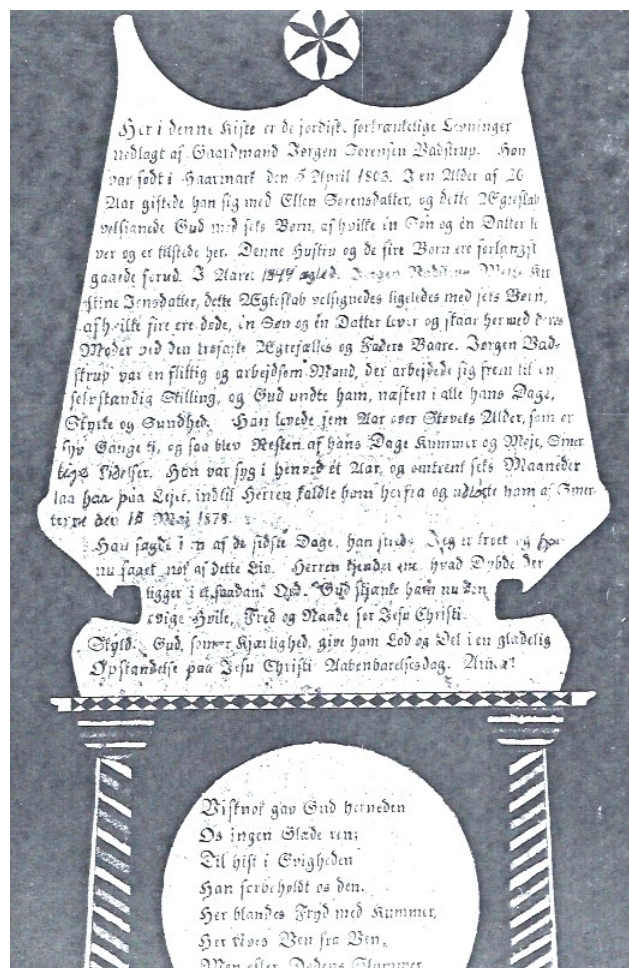 Her i denne Kiste er de jordiske forkrænkelige Levninger
nedlagt af Gaardmand Jørgen Sørensen Badstrup. Han
var født i Haarmark den 5 April 1803. I en Alder af 26
Aar giftede han sig med Ellen Sørensdatter, og dette Ægteskab
velsignede Gud med seks Børn, af hvilke én Søn og én Datter le
ver og er tilstede her. Denne Hustru og de fire Børn ere forlængst
gaaede forud. I Aaret 1844 ægted. Jørgen Badstrup Mette Kir
stine Jensdatter, dette Ægteskab velsignedes ligeledes med seks Børn,
af hvilke fire ere døde, én Søn og én Datter lever og staar her med deres
Moder ved den trofaste Ægtefælles og Faders Baare. Jørgen Bad-
strup var en flittig og arbejdsom Mand, der arbejdede sig frem til en
selvstændig Stilling, og Gud undte ham, næsten i alle hans Dage,
Styrke og Sundhed. Han levede fem Aar over Støvets Alder, som er
syv Gange ti, og saa blev Resten af hans Dage Kummer og Møje, Smer
Lidelser. Han var syg i henved ét Aar, og omtrent seks Maaneder
laa han paa Lejet, indtil Herren kaldte ham herfra og udløste ham af Smer
terne den 15 Maj 1878.
Han sagde i en af de sidste Dage, han Jeg er troet og har
nu faaet nok af dette Liv. Herren kjender ene, hvad Dybde der
ligger i et saadant Ord. Gud skjænke ham nu den
evige Hvile, Fred og Naade for Jesu Christi
Skyld. Gud, som er Kjærlighed, give ham Lod og Del i en glædelig
Opstandelse paa Jesu Christi Aabenbarelsesdag. Amen!
Vistnok gav Gud herneden
Os ingen Glæde ren;
Til hist i Evigheden
Han forbeholdt os den.
Her blandes Fryd med Kummer,
Her rives Ven fra Ven,
Men efter Dødens Slummer